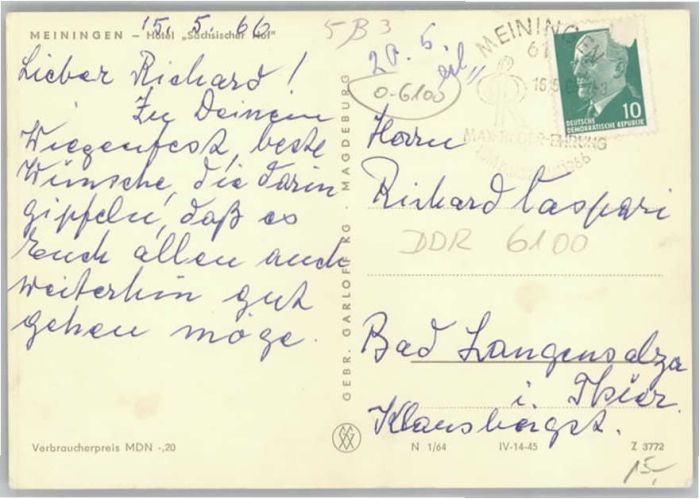 15. 5. 66
MEININGEN – Hotel „Sächsischer Hof"
Lieber Richard!
Zu Deinem
Wiegenfest, beste
Wünsche, die darin
gipfeln, daß es
Euch allen auch
weiterhin gut
gehen möge.
Verbraucherpreis MDN -,20
GEBR. GARLOFF KG · MAGDEBURG
5B3
20. 5
0-6100
MEININGEN
61
MAX-REGER-EHRUNG
DEUTSCHE
DEMOKRATISCHE REPUBLIK
10
Herrn
Richard Caspari
DDR 6100
Bad Langensalza
i. Thür.
N 1/64 IV-14-45 Z 3772
15,-